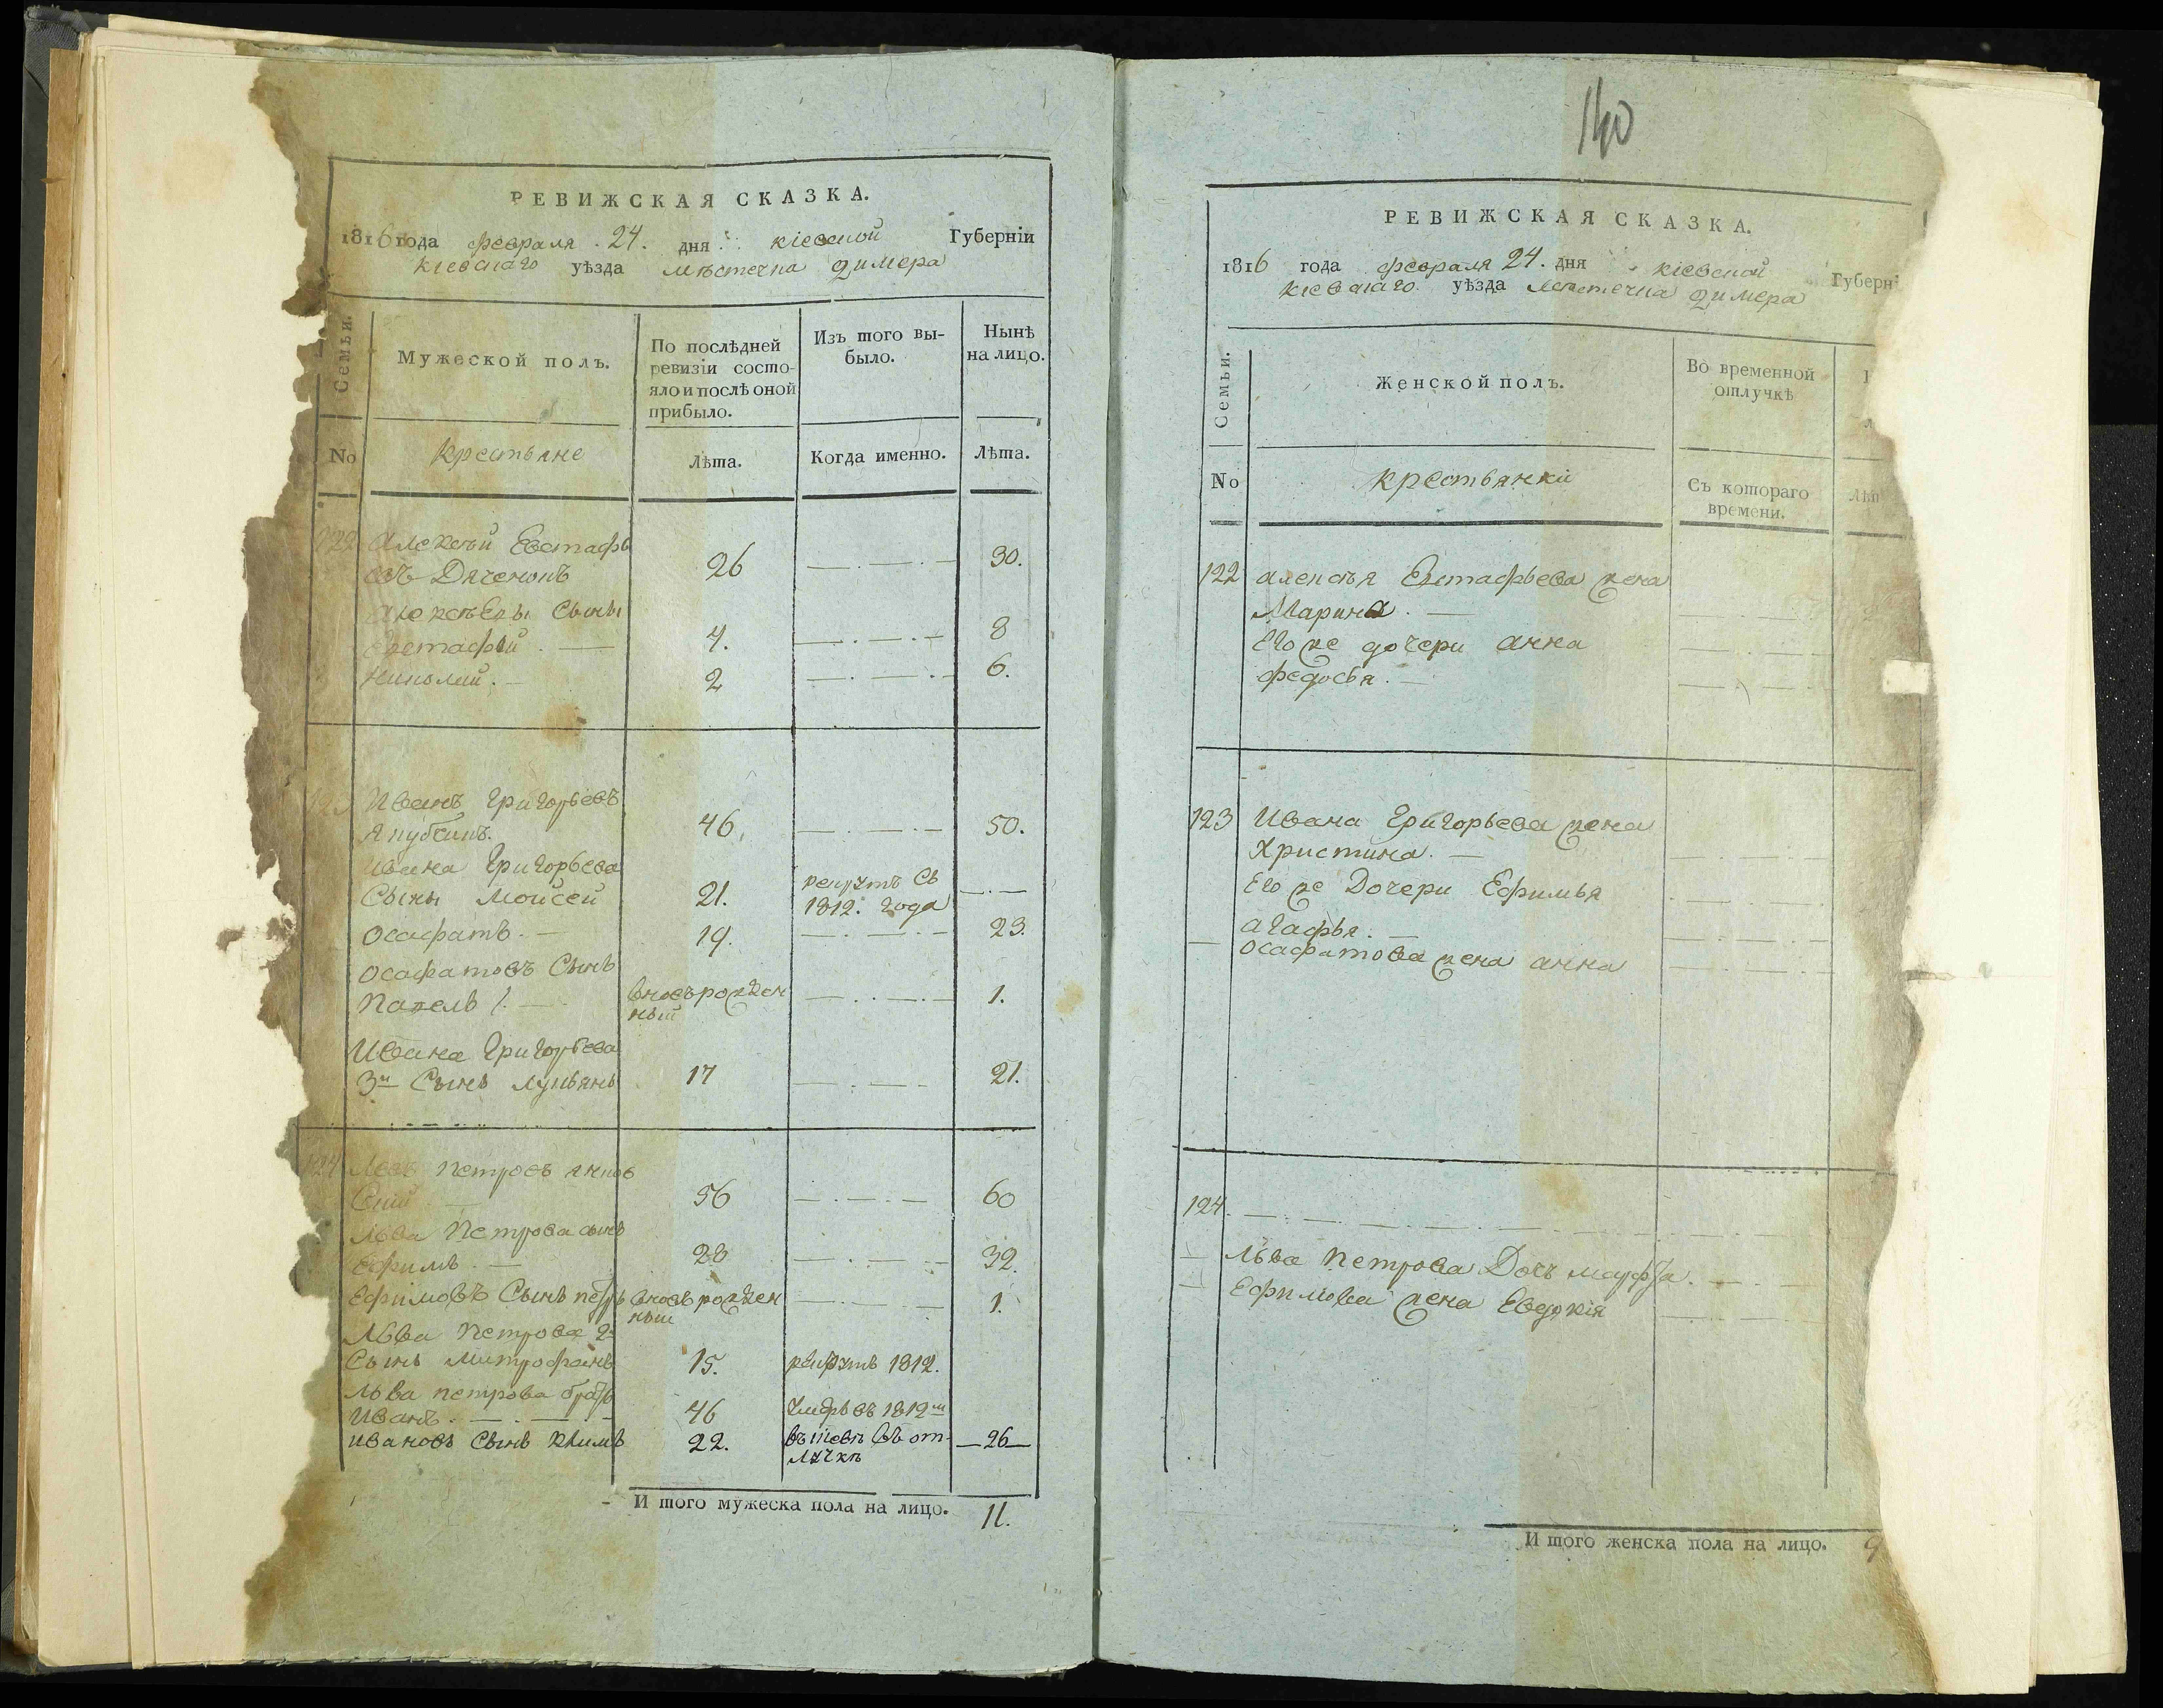 РЕВИЖСКАЯ СКАЗКА.
1816 года февраля 24. дня кіевской Губерніи
кіевскаго уѣзда мѣстечка димера
Семьи.
Мужеской полъ.
По послѣдней ревизіи состояло и послѣ оной прибыло.
Изъ того выбыло.
Нынѣ на лицо.
No крестьяне Лѣта. Когда именно. Лѣта.
122 Алексѣй Евстафь
евъ Дяченокъ 26 30.
Алексѣевы Сыны
Евстафій 4. 8
Николай. 2 6.
123 Иванъ Григорьевъ
46. 50.
Ивана Григорьева
Сыны Мойсей 21. рекрутъ съ 1812. года
Осафатъ. 19. 23.
Осафатовъ Сынъ
Павелъ 1. вновьрожденный 1.
Ивана Григорьева
3й Сынъ лукьянъ 17 21.
124 Левъ Петровъ янков
скій 56 60
Льва Петрова сынъ
Ефимъ. 28 32.
Ефимовъ Сынъ петръ вновьрожденный 1.
Льва Петрова 2й
Сынъ митрофанъ 15. рекрутъ 1812.
Льва петрова братъ
Иванъ. 46 умеръ въ 1812м
Ивановъ Сынъ Климъ 22. отлучкѣ 26
И того мужеска пола на лицо. 11.
140
РЕВИЖСКАЯ СКАЗКА.
1816 года февраля 24. дня кіевской Губерні
кіевскаго уѣзда мѣстечка димера
Семьи.
Женской полъ.
Во временной отлучкѣ
No крестьянки Съ котораго времени. Лѣт
122 алексѣя Евстафьева жена
Марина.
Его же дочери анна
федосья.
123 Ивана Григорьева жена
Христина.
Его же Дочери Ефимья
агафья.
осафатова жена анна
124.
Льва Петрова Дочь марфа.
Ефимова жена Евдокія
И того женска пола на лицо. 9